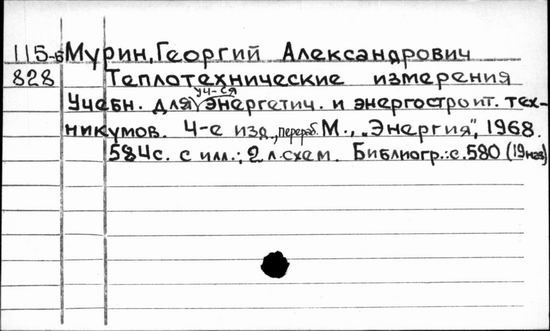 115-б Мурин, Георгий Александрович
828 Теплотехнические измерения
уч-ся
Учебн. для энергетич. и энергостроит. тех-
никумов. 4-е изд., перераб. М., „Энергия", 1968.
584с. с илл.; 2 л. схем. Библиогр.: с. 580 (19 назв)